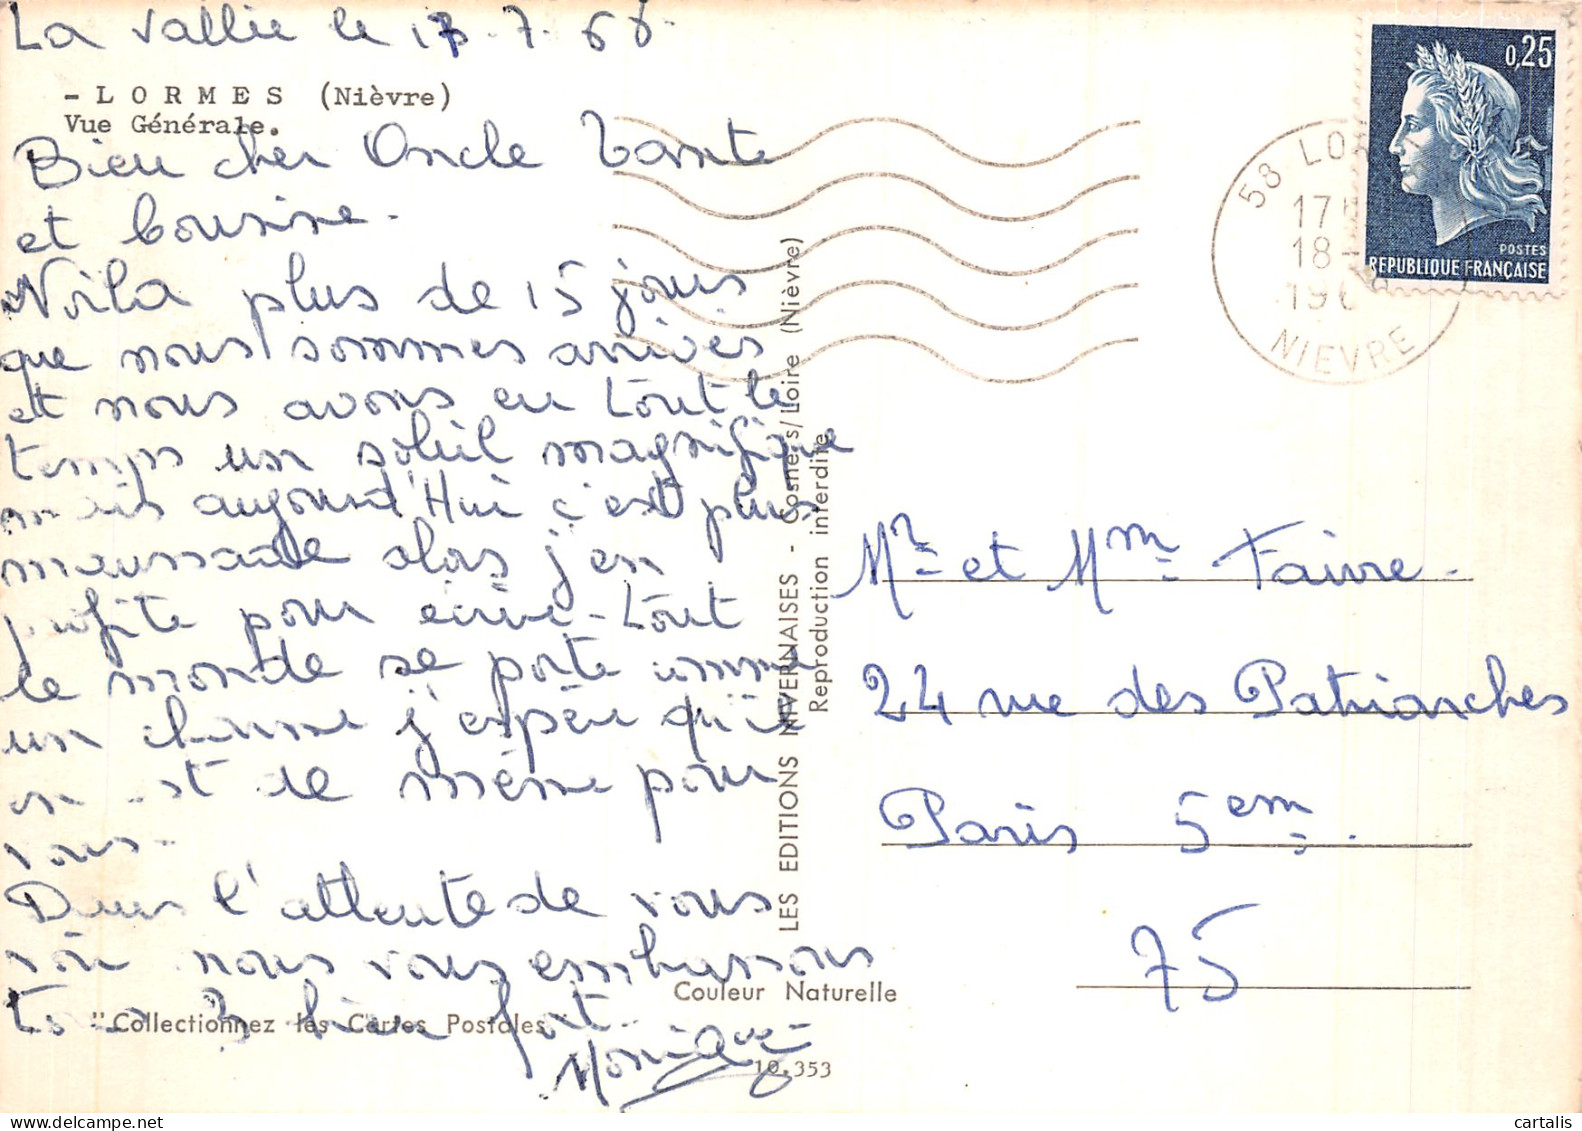 La Vallée le 17.7.68
- L O R M E S (Nièvre)
Vue Générale.
Bien cher Oncle Tante
et Cousine.
Voila plus de 15 jours
que nous sommes arrivés
et nous avons eu tout le
temps un soleil magnifique
mais aujourd'Hui c'est plus
maussade alors j'en
profite pour écrire - Tout
le monde se porte comme
un charme j'espère qu'il
en est de même pour
vous.
Dans l'attente de vous
voir nous vous embrassons
tous 3 bien fort.
Monique
"Collectionnez les Cartes Postales"
Couleur Naturelle
10.353
LES EDITIONS NIVERNAISES - Cosne s/Loire (Nièvre)
Reproduction interdite
0,25
POSTES
REPUBLIQUE FRANÇAISE
58 LOR
17 H
18 -
196
NIEVRE
Mr et Mme Faivre.
24 rue des Patriarches
Paris 5em.
75
cartalis